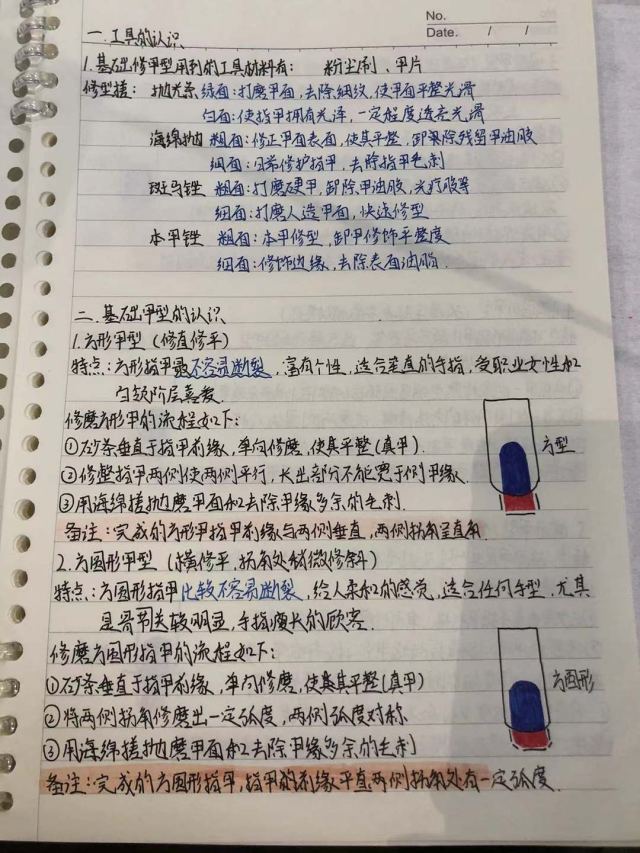 No.
Date. / /
一.工具的认识
1.基础修甲型用到的工具材料有: 粉尘刷、甲片
修型搓: 抛光条 细面:打磨甲面,去除细纹,使甲面平整光滑
白面:使指甲拥有光泽,一定程度透亮光滑
海绵抛 粗面:修正甲面表面,使其平整,卸果除残留甲油胶
细面:日常修护指甲,去除指甲毛刺
斑马锉 粗面:打磨硬甲,卸除甲油胶,光疗胶等
细面:打磨人造甲面,快速修型
本甲锉 粗面:本甲修型,卸甲修饰平整度
细面:修饰边缘,去除表面油脂.
二.基础甲型的认识
1.方形甲型(修直修平)
特点:方形指甲最不容易断裂,富有个性,适合垂直的手指,受职业女性和
白领阶层喜爱.
修磨方形甲的流程如下:
①砂条垂直于指甲前缘,单向修磨,使其平整(真甲).
②修整指甲两侧使两侧平行,长出部分不能宽于侧甲缘.
方型
③用海绵搓抛磨甲面和去除甲缘多余的毛刺.
备注:完成的方形甲指甲前缘与两侧垂直,两侧拐角呈直角.
2.方圆形甲型(横修平,拐角处稍微修斜)
特点:方圆形指甲比较不容易断裂,给人柔和的感觉,适合任何手型,尤其
是骨节关较明显,手指瘦长的顾客.
修磨方圆形指甲的流程如下:
①砂条垂直于指甲前缘,单向修磨,使其平整(真甲)
方圆形
②将两侧拐角修磨出一定弧度,两侧弧度对称
③用海绵搓抛磨甲面和去除甲缘多余的毛刺
备注:完成的方圆形指甲,指甲的前缘平直,两侧拐角处有一定弧度.